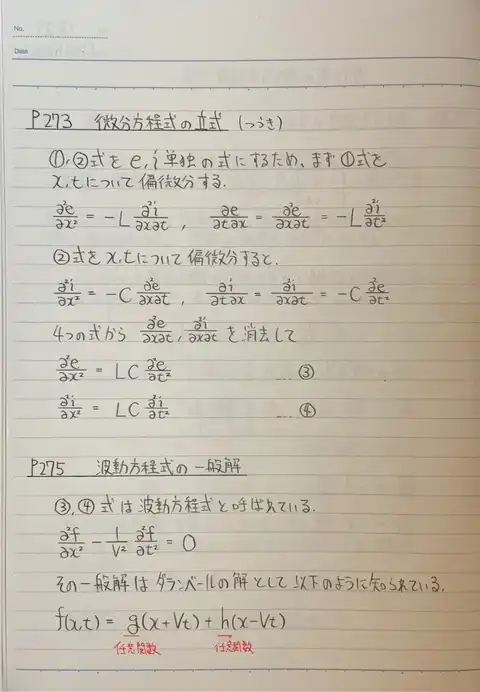 No.
Date
P273 微分方程式の立式 (つづき)
①,②式を e, i 単独の式にするため、まず①式を
x, tについて偏微分する.
∂²e/∂x² = -L ∂²i/∂x∂t , ∂e/∂t∂x = ∂²e/∂x∂t = -L ∂²i/∂t²
②式をx,tについて偏微分すると.
∂²i/∂x² = -C ∂²e/∂x∂t , ∂i/∂t∂x = ∂²i/∂x∂t = -C ∂²e/∂t²
4つの式から ∂²e/∂x∂t , ∂²i/∂x∂t を消去して
∂²e/∂x² = LC ∂²e/∂t² ... ③
∂²i/∂x² = LC ∂²i/∂t² ... ④
P275 波動方程式の一般解
③,④ 式は波動方程式と呼ばれている.
∂²f/∂x² - 1/V² ∂²f/∂t² = 0
その一般解はダランベールの解として以下のように知られている.
f(x,t) = g(x+Vt) + h(x-Vt)
任意関数 任意関数